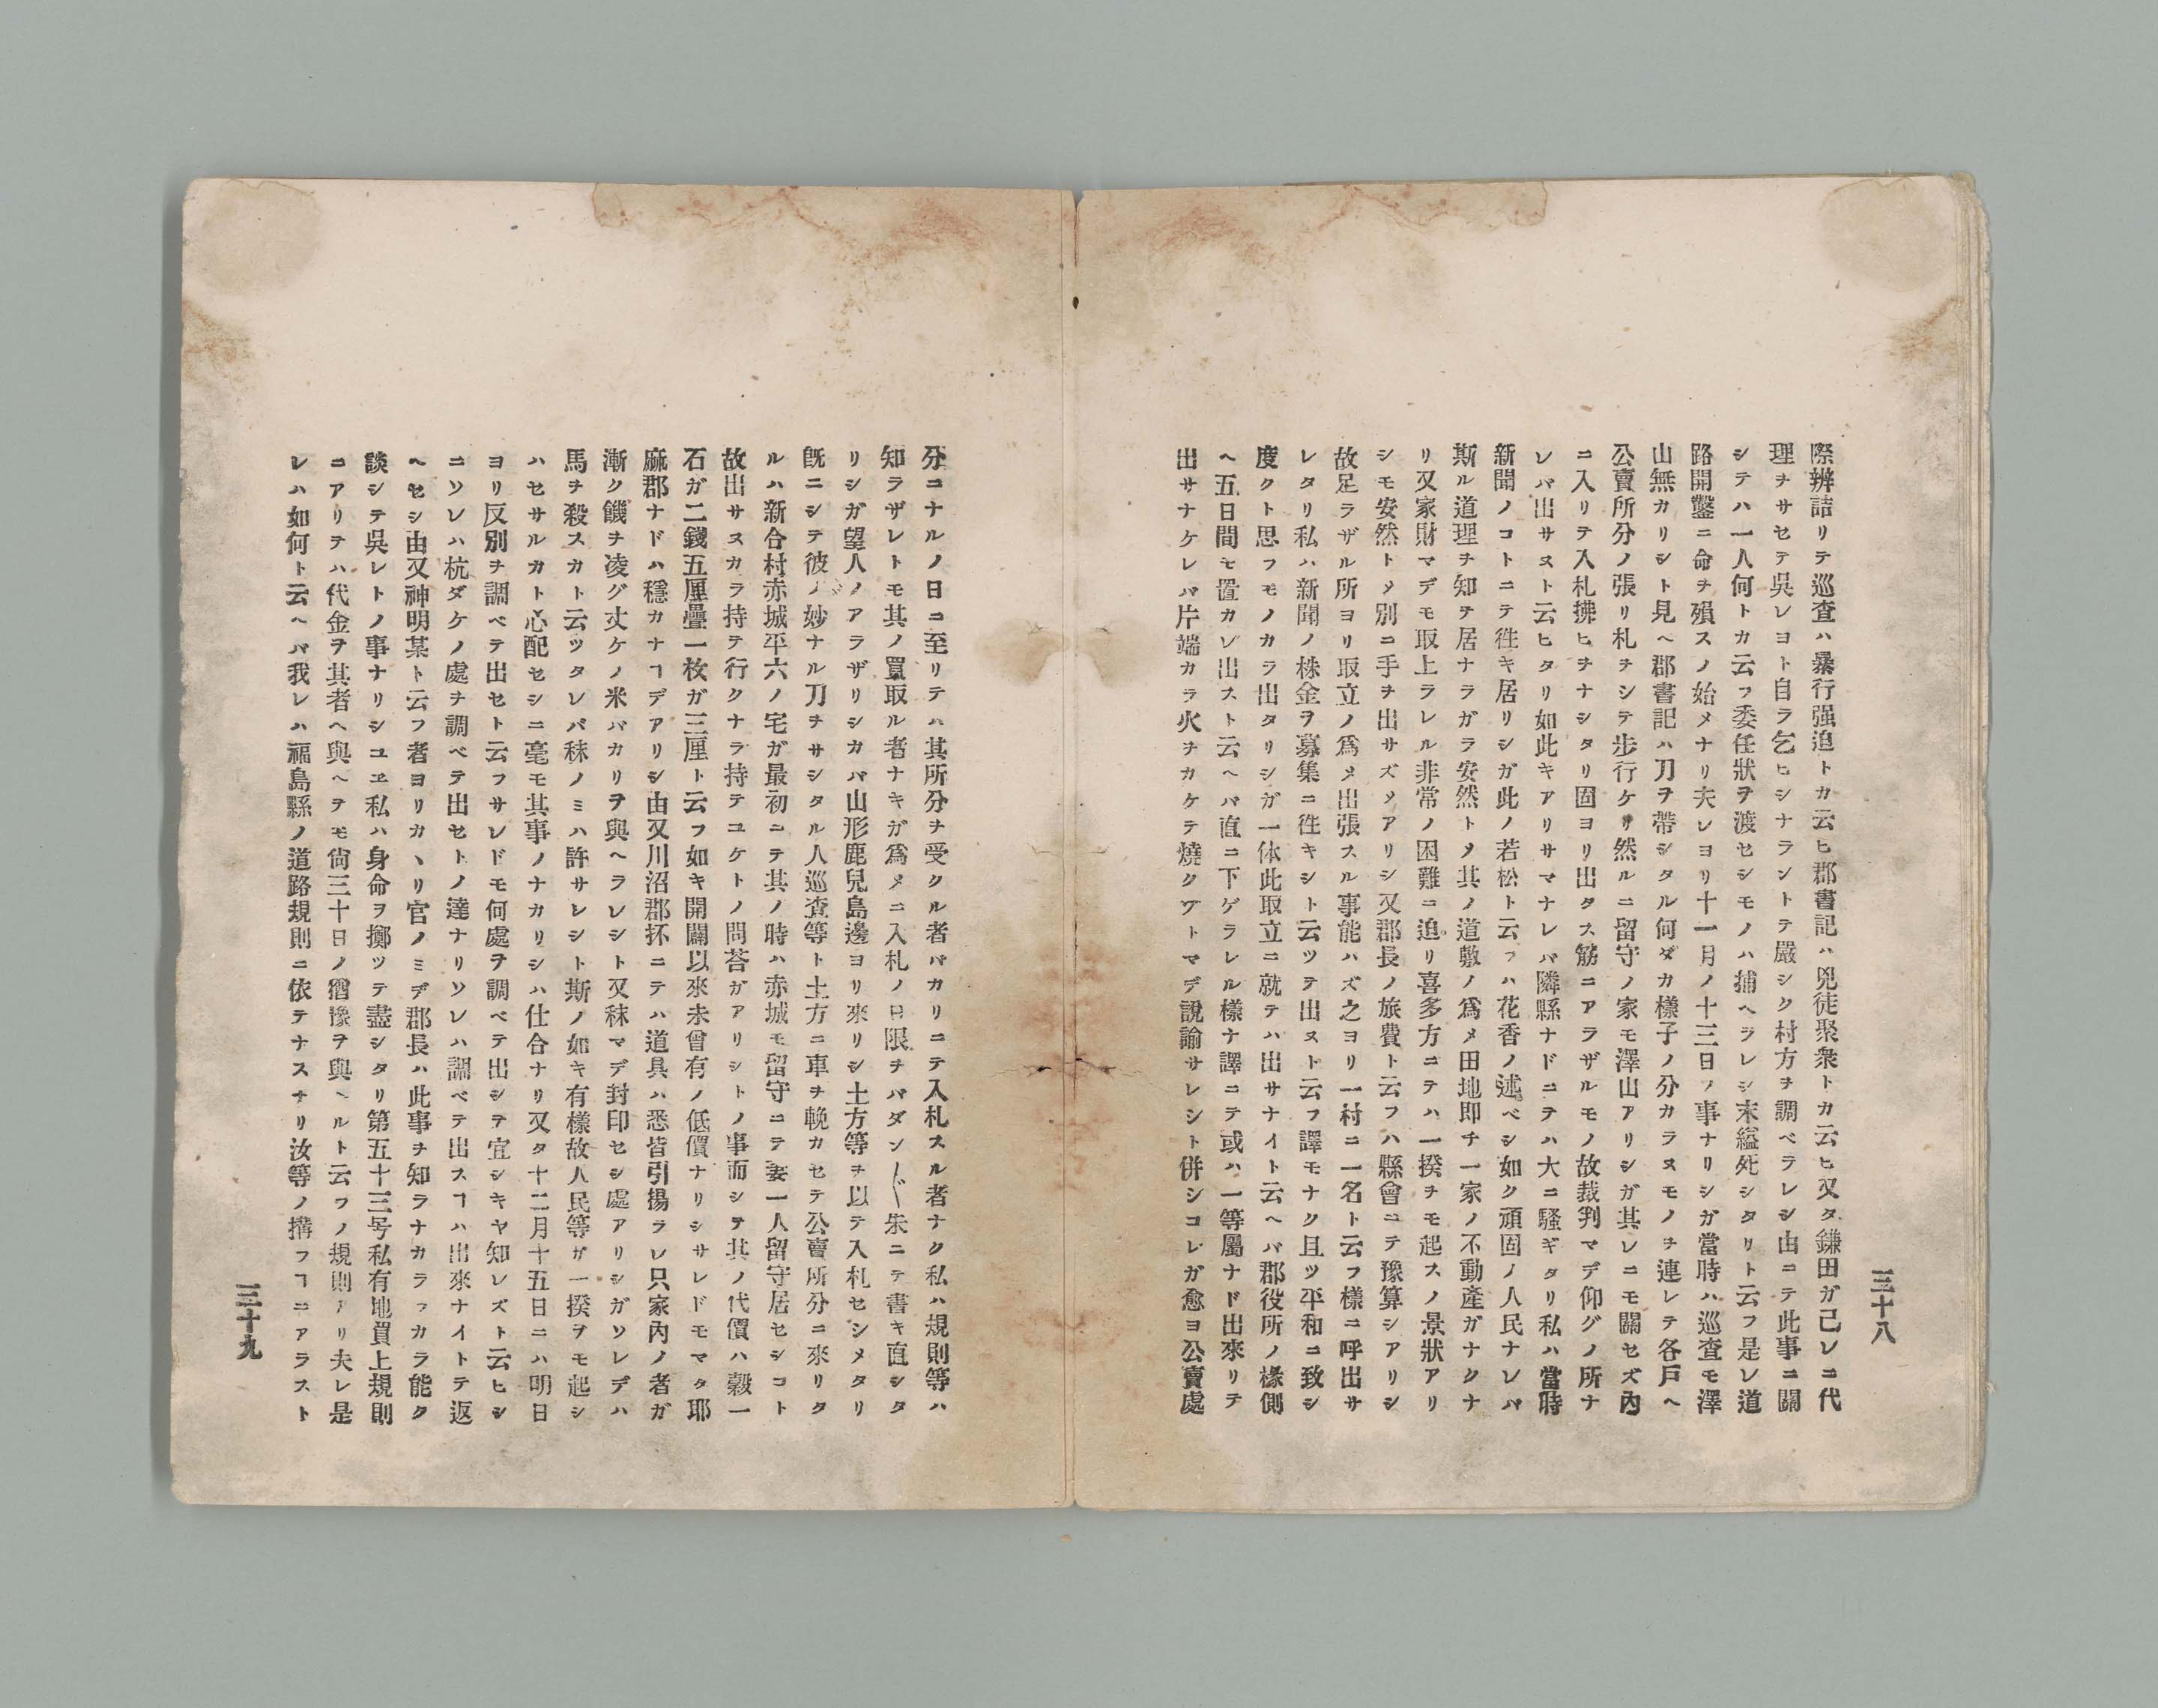 三十八
際辨詰リテ巡査ハ暴行强迫トカ云ヒ郡書記ハ兇徒聚衆トカ云ヒ又タ鎌田ガ己レニ代
理ヲサセテ吳レヨト自ラ乞ヒシナラントテ嚴シク村方ヲ調ベラレシ由ニテ此事ニ關
シテハ一人何トカ云フ委任狀ヲ渡セシモノハ捕ヘラレシ末縊死シタリト云フ是レ道
路開鑿ニ命ヲ殞スノ始メナリ夫レヨリ十一月ノ十三日ノ事ナリシガ當時ハ巡査モ澤
山無カリシト見ヘ郡書記ハ刀ヲ帶シタル何ダカ樣子ノ分カラヌモノヲ連レテ各戶ヘ
公賣所分ノ張リ札ヲシテ步行ケリ然ルニ留守ノ家モ澤山アリシガ其レニモ關セズ內
ニ入リテ入札拂ヒヲナシタリ固ヨリ出タス筋ニアラザルモノ故裁判マデ仰グノ所ナ
レバ出サヌト云ヒタリ如此キアリサマナレバ隣縣ナドニテハ大ニ騷ギタリ私ハ當時
新聞ノコトニテ徃キ居リシガ此ノ若松ト云フハ花香ノ述ベシ如ク頑固ノ人民ナレバ
斯ル道理ヲ知ヲ居ナラガラ安然トメ其ノ道敷ノ爲メ田地即チ一家ノ不動產ガナクナ
リ又家財マデモ取上ラレル非常ノ困難ニ迫リ喜多方ニテハ一揆ヲモ起スノ景狀アリ
シモ安然トメ別ニ手ヲ出サズメアリシ又郡長ノ旅費ト云フハ縣會ニテ豫算シアリシ
故足ラザル所ヨリ取立ノ爲メ出張スル事能ハズ之ヨリ一村ニ一名ト云フ樣ニ呼出サ
レタリ私ハ新聞ノ株金ヲ募集ニ徃キシト云ツテ出ヌト云フ譯モナク且ツ平和ニ致シ
度クト思フモノカラ出タリシガ一体此取立ニ就テハ出サナイト云ヘバ郡役所ノ椽側
ヘ五日間モ置カソ出スト云ヘバ直ニ下ゲラレル樣ナ譯ニテ或ハ一等屬ナド出來リテ
出サナケレバ片端カラ火ヲカケテ燒クゾトマデ說諭サレシト併シコレガ愈ヨ公賣處
分ニナルノ日ニ至リテハ其所分ヲ受クル者バカリニテ入札スル者ナク私ハ規則等ハ
知ラザレトモ其ノ買取ル者ナキガ爲メニ入札ノ日限ヲバダン〱朱ニテ書キ直シタ
リシガ望人ノアラザリシカバ山形鹿兒島邊ヨリ來リシ土方等ヲ以テ入札セシメタリ
旣ニシテ彼ノ妙ナル刀ヲサシタル人巡査等ト土方ニ車ヲ輓カセテ公賣所分ニ來リタ
ルハ新合村赤城平六ノ宅ガ最初ニテ其ノ時ハ赤城モ留守ニテ妻一人留守居セシコト
故出サヌカラ持テ行クナラ持テユケトノ問荅ガアリシトノ事而シテ其ノ代價ハ穀一
石ガ二錢五厘疊一枚ガ三厘ト云フ如キ開闢以來未曾有ノ低價ナリシサレドモマタ耶
麻郡ナドハ穩カナヿデアリシ由又川沼郡抔ニテハ道具ハ悉皆引揚ラレ只家內ノ者ガ
漸ク饑ヲ凌グ丈ケノ米バカリヲ與ヘラレシト又秣マデ封印セシ處アリシガソレデハ
馬ヲ殺スカト云ツタレバ秣ノミハ許サレシト斯ノ如キ有樣故人民等ガ一揆ヲモ起シ
ハセサルカト心配セシニ毫モ其事ノナカリシハ仕合ナリ又タ十二月十五日ニハ明日
ヨリ反別ヲ調ベテ出セト云フサレドモ何處ヲ調ベテ出シテ宜シキヤ知レズト云ヒシ
ニソレハ杭ダケノ處ヲ調ベテ出セトノ達ナリソレハ調ベテ出スヿハ出來ナイトテ返
ヘセシ由又神明某ト云フ者ヨリカヽリ官ノミデ郡長ハ此事ヲ知ラナカラフカラ能ク
談シテ吳レトノ事ナリシユヱ私ハ身命ヲ擲ツテ盡シタリ第五十三号私有地買上規則
ニアリテハ代金ヲ其者ヘ與ヘテモ尙三十日ノ猶豫ヲ與ヘルト云フノ規則アリ夫レ是
レハ如何ト云ヘバ我レハ福島縣ノ道路規則ニ依テナスナリ汝等ノ搆フヿニアラスト
三十九